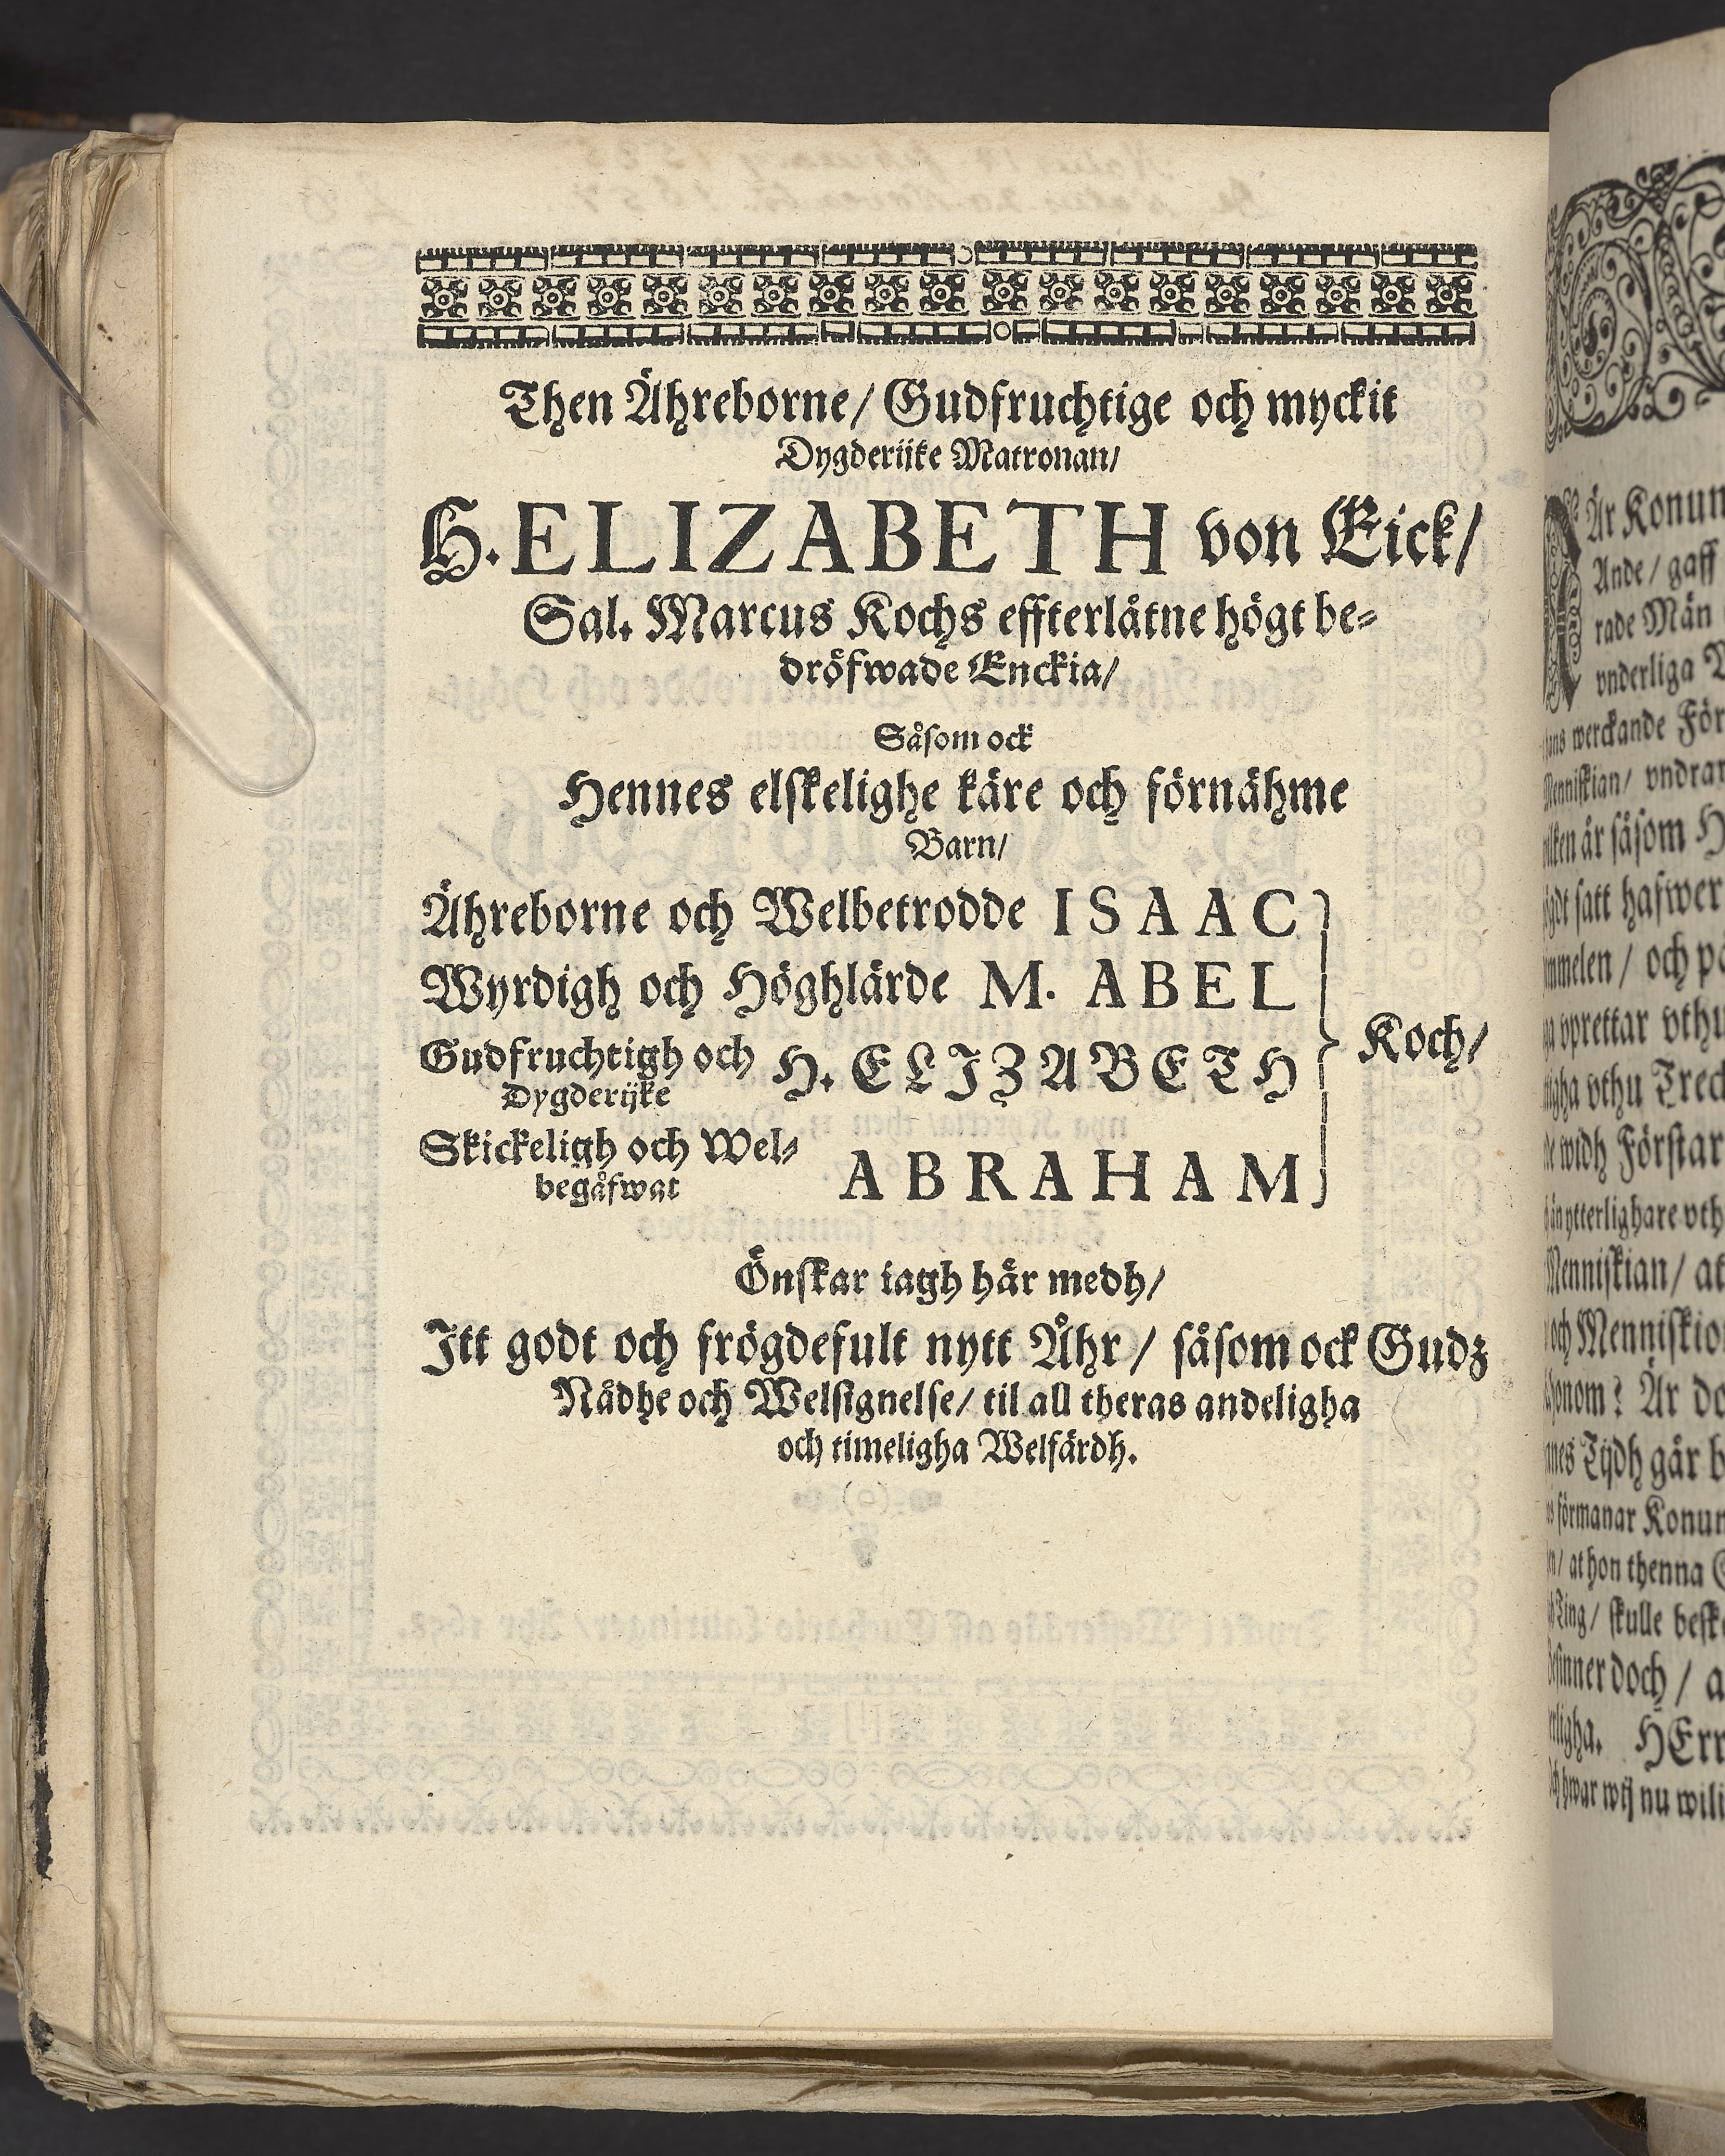 Then Ähreborne/ Gudfruchtige och myckit
Dygderijke Matronan/
H. ELIZABETH von Eick/
Sal. Marcus Kochs effterlåtne högt be-
dröfwade Enckia/
Såsom ock
Hennes elskelighe käre och förnähme
Barn/
Ähreborne och Welbetrodde ISAAC
Wyrdigh och Höghlärde M. ABEL
Koch/
Gudfruchtigh och H. ELIZABETH
Dygderijke
Skickeligh och Wel-
begåfwat ABRAHAM
Önskar iagh här medh/
Itt godt och frögdefult nytt Åhr/ såsom ock Gudz
Nådhe och Welsignelse/ til all theras andeligha
och timeligha Welfärdh.
Är Konun
Ande/ gaff
rade Män
vnderliga
werckande För
vndrar
är såsom H
satt hafwer
och
vprettar vthu
vthu Treck
widh Förstar
vth
Menniskian/ at
och Menniskio
Är do
Tijdh går b
förmanar Konun
at hon thenna
Ting/ skulle besk
doch/ a
HErr
hwar wij nu wili